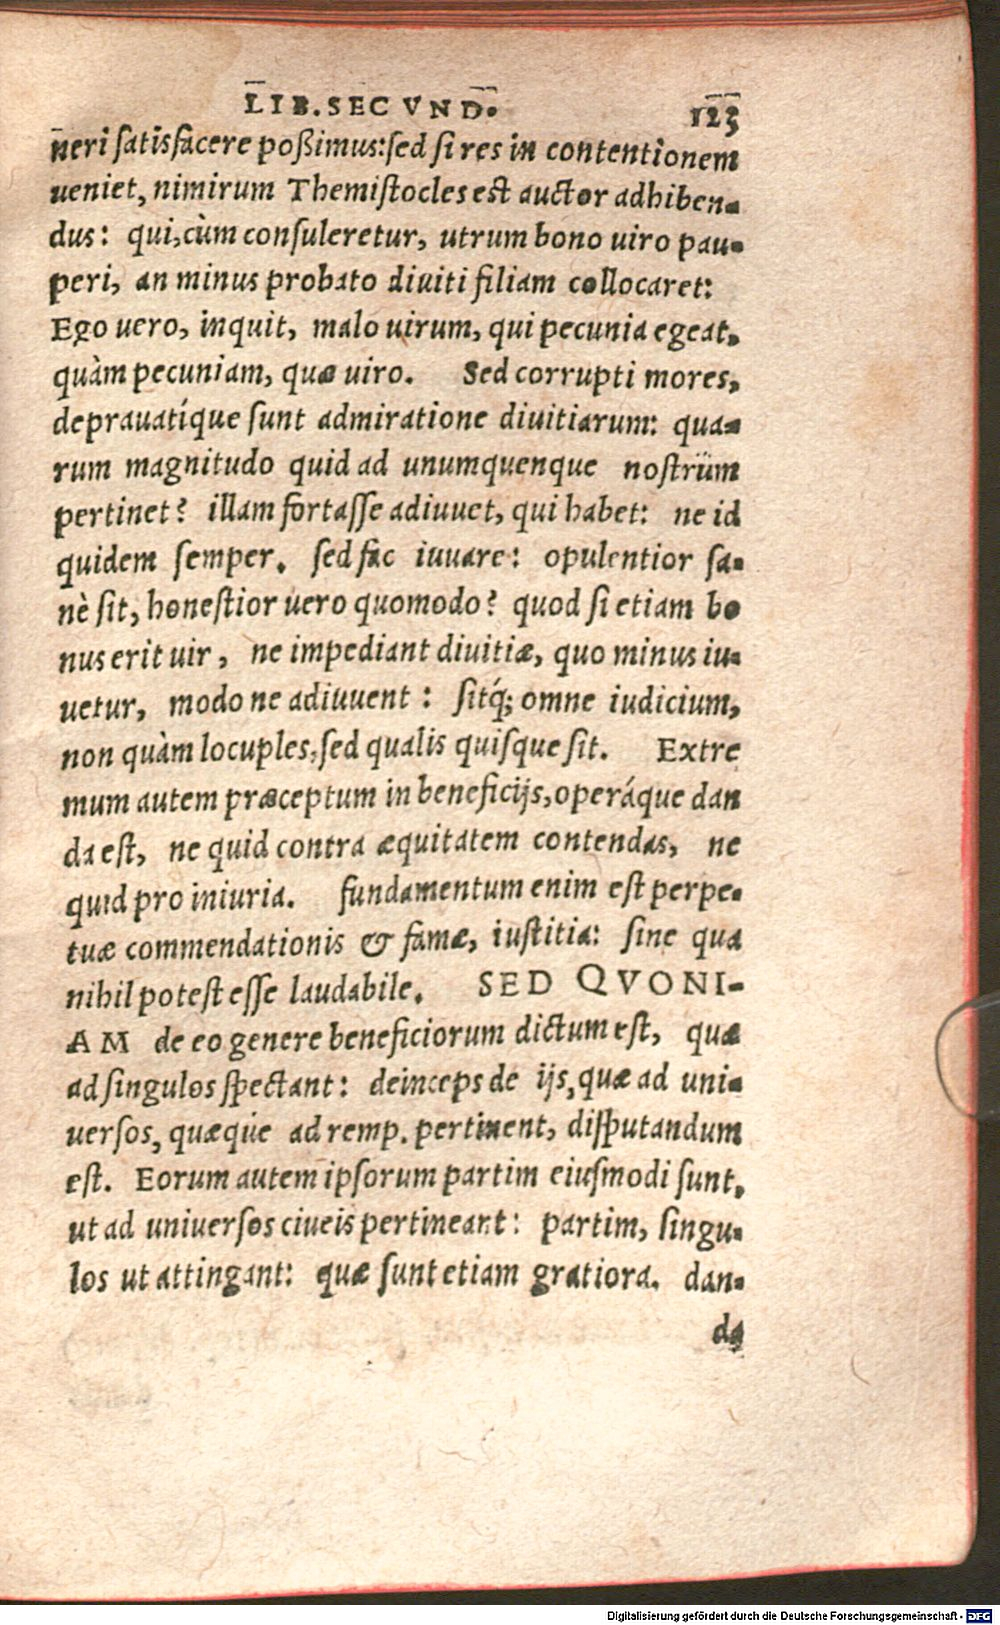 LIB. SECVND.
123
neri satisfacere poßimus: sed si res in contentionem
ueniet, nimirum Themistocles est auctor adhiben-
dus: qui, cùm consuleretur, utrum bono uiro pau-
peri, an minus probato diuiti filiam collocaret:
Ego uero, inquit, malo uirum, qui pecunia egeat,
quàm pecuniam, quæ uiro. Sed corrupti mores,
deprauatíque sunt admiratione diuitiarum: qua-
rum magnitudo quid ad unumquenque nostrûm
pertinet? illam fortasse adiuuet, qui habet: ne id
quidem semper. sed fac iuuare: opulentior sa-
nè sit, honestior uero quomodo? quod si etiam bo
nus erit uir, ne impediant diuitiæ, quo minus iu-
uetur, modo ne adiuuent: sitq́; omne iudicium,
non quàm locuples, sed qualis quisque sit. Extre
mum autem præceptum in beneficijs, operáque dan
da est, ne quid contra æquitatem contendas, ne
quid pro iniuria. fundamentum enim est perpe-
tuæ commendationis & famæ, iustitia: sine qua
nihil potest esse laudabile. SED QVONI-
AM de eo genere beneficiorum dictum est, quæ
ad singulos spectant: deinceps de ijs, quæ ad uni-
uersos, quæque ad remp. pertinent, disputandum
est. Eorum autem ipsorum partim eiusmodi sunt,
ut ad uniuersos ciueis pertineant: partim, singu-
los ut attingant: quæ sunt etiam gratiora. dan-
da
Digitalisierung gefördert durch die Deutsche Forschungsgemeinschaft - DFG